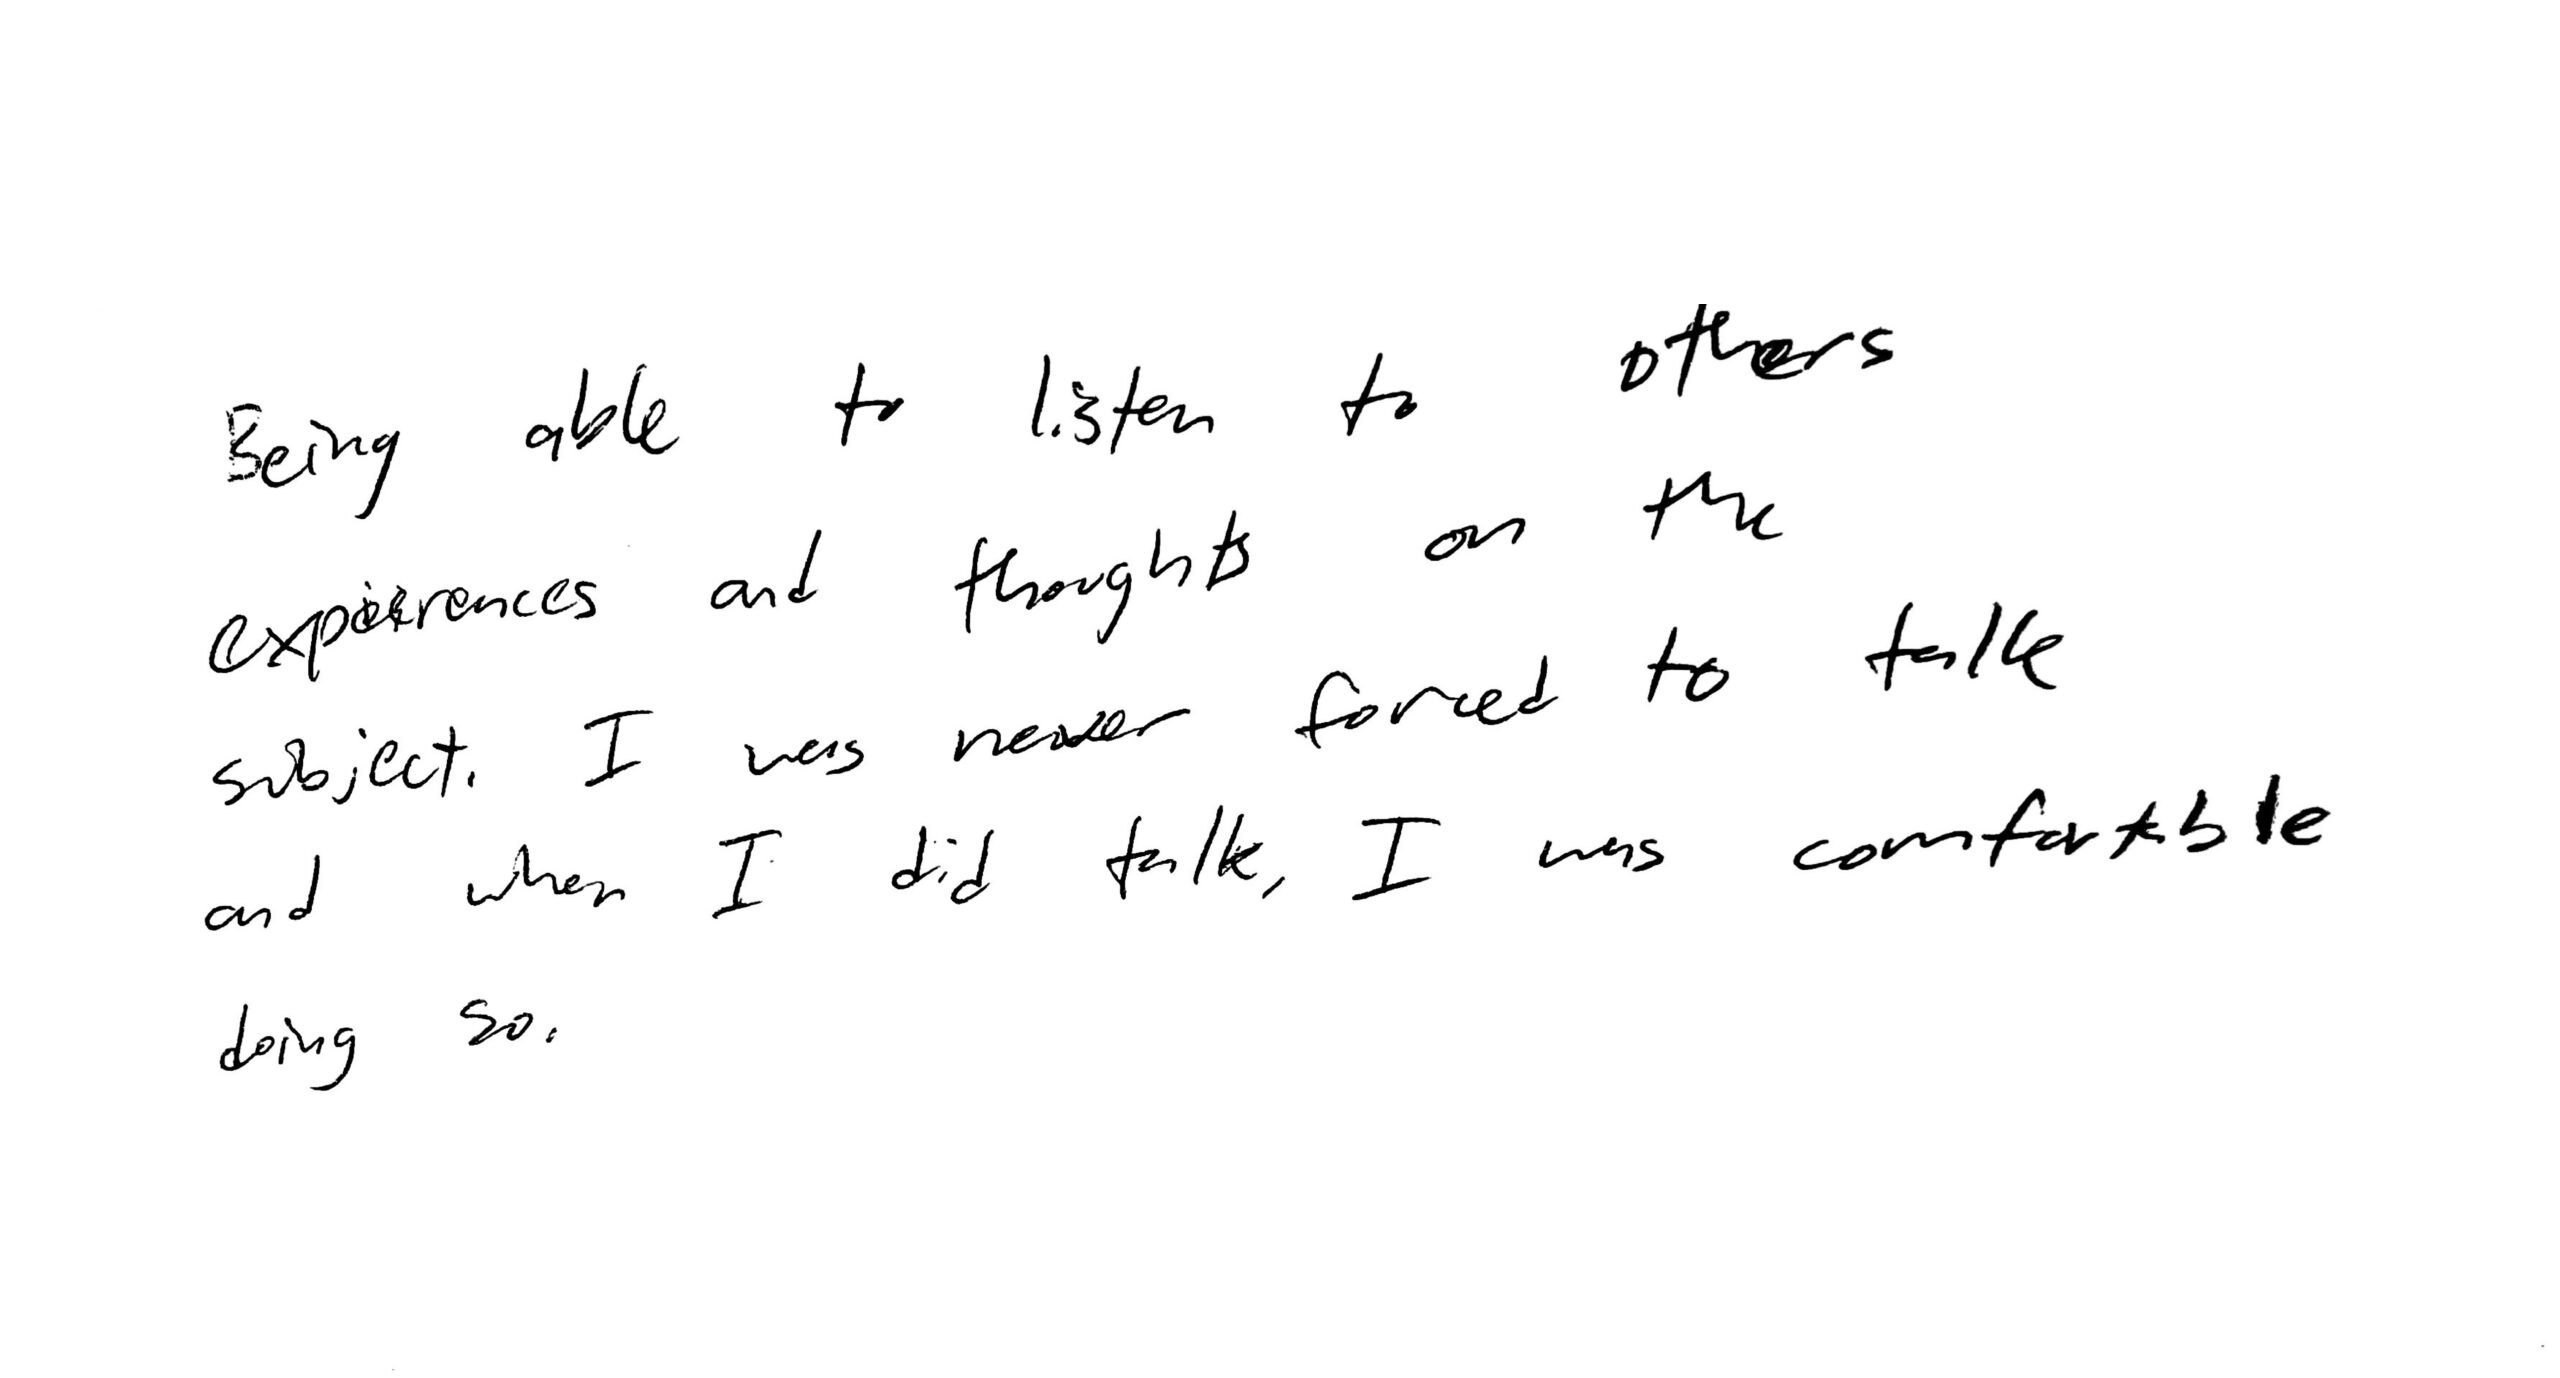 Being able to listen to others
experiences and thoughts on the
subject. I was never forced to talk
and when I did talk, I was comfortable
doing so.